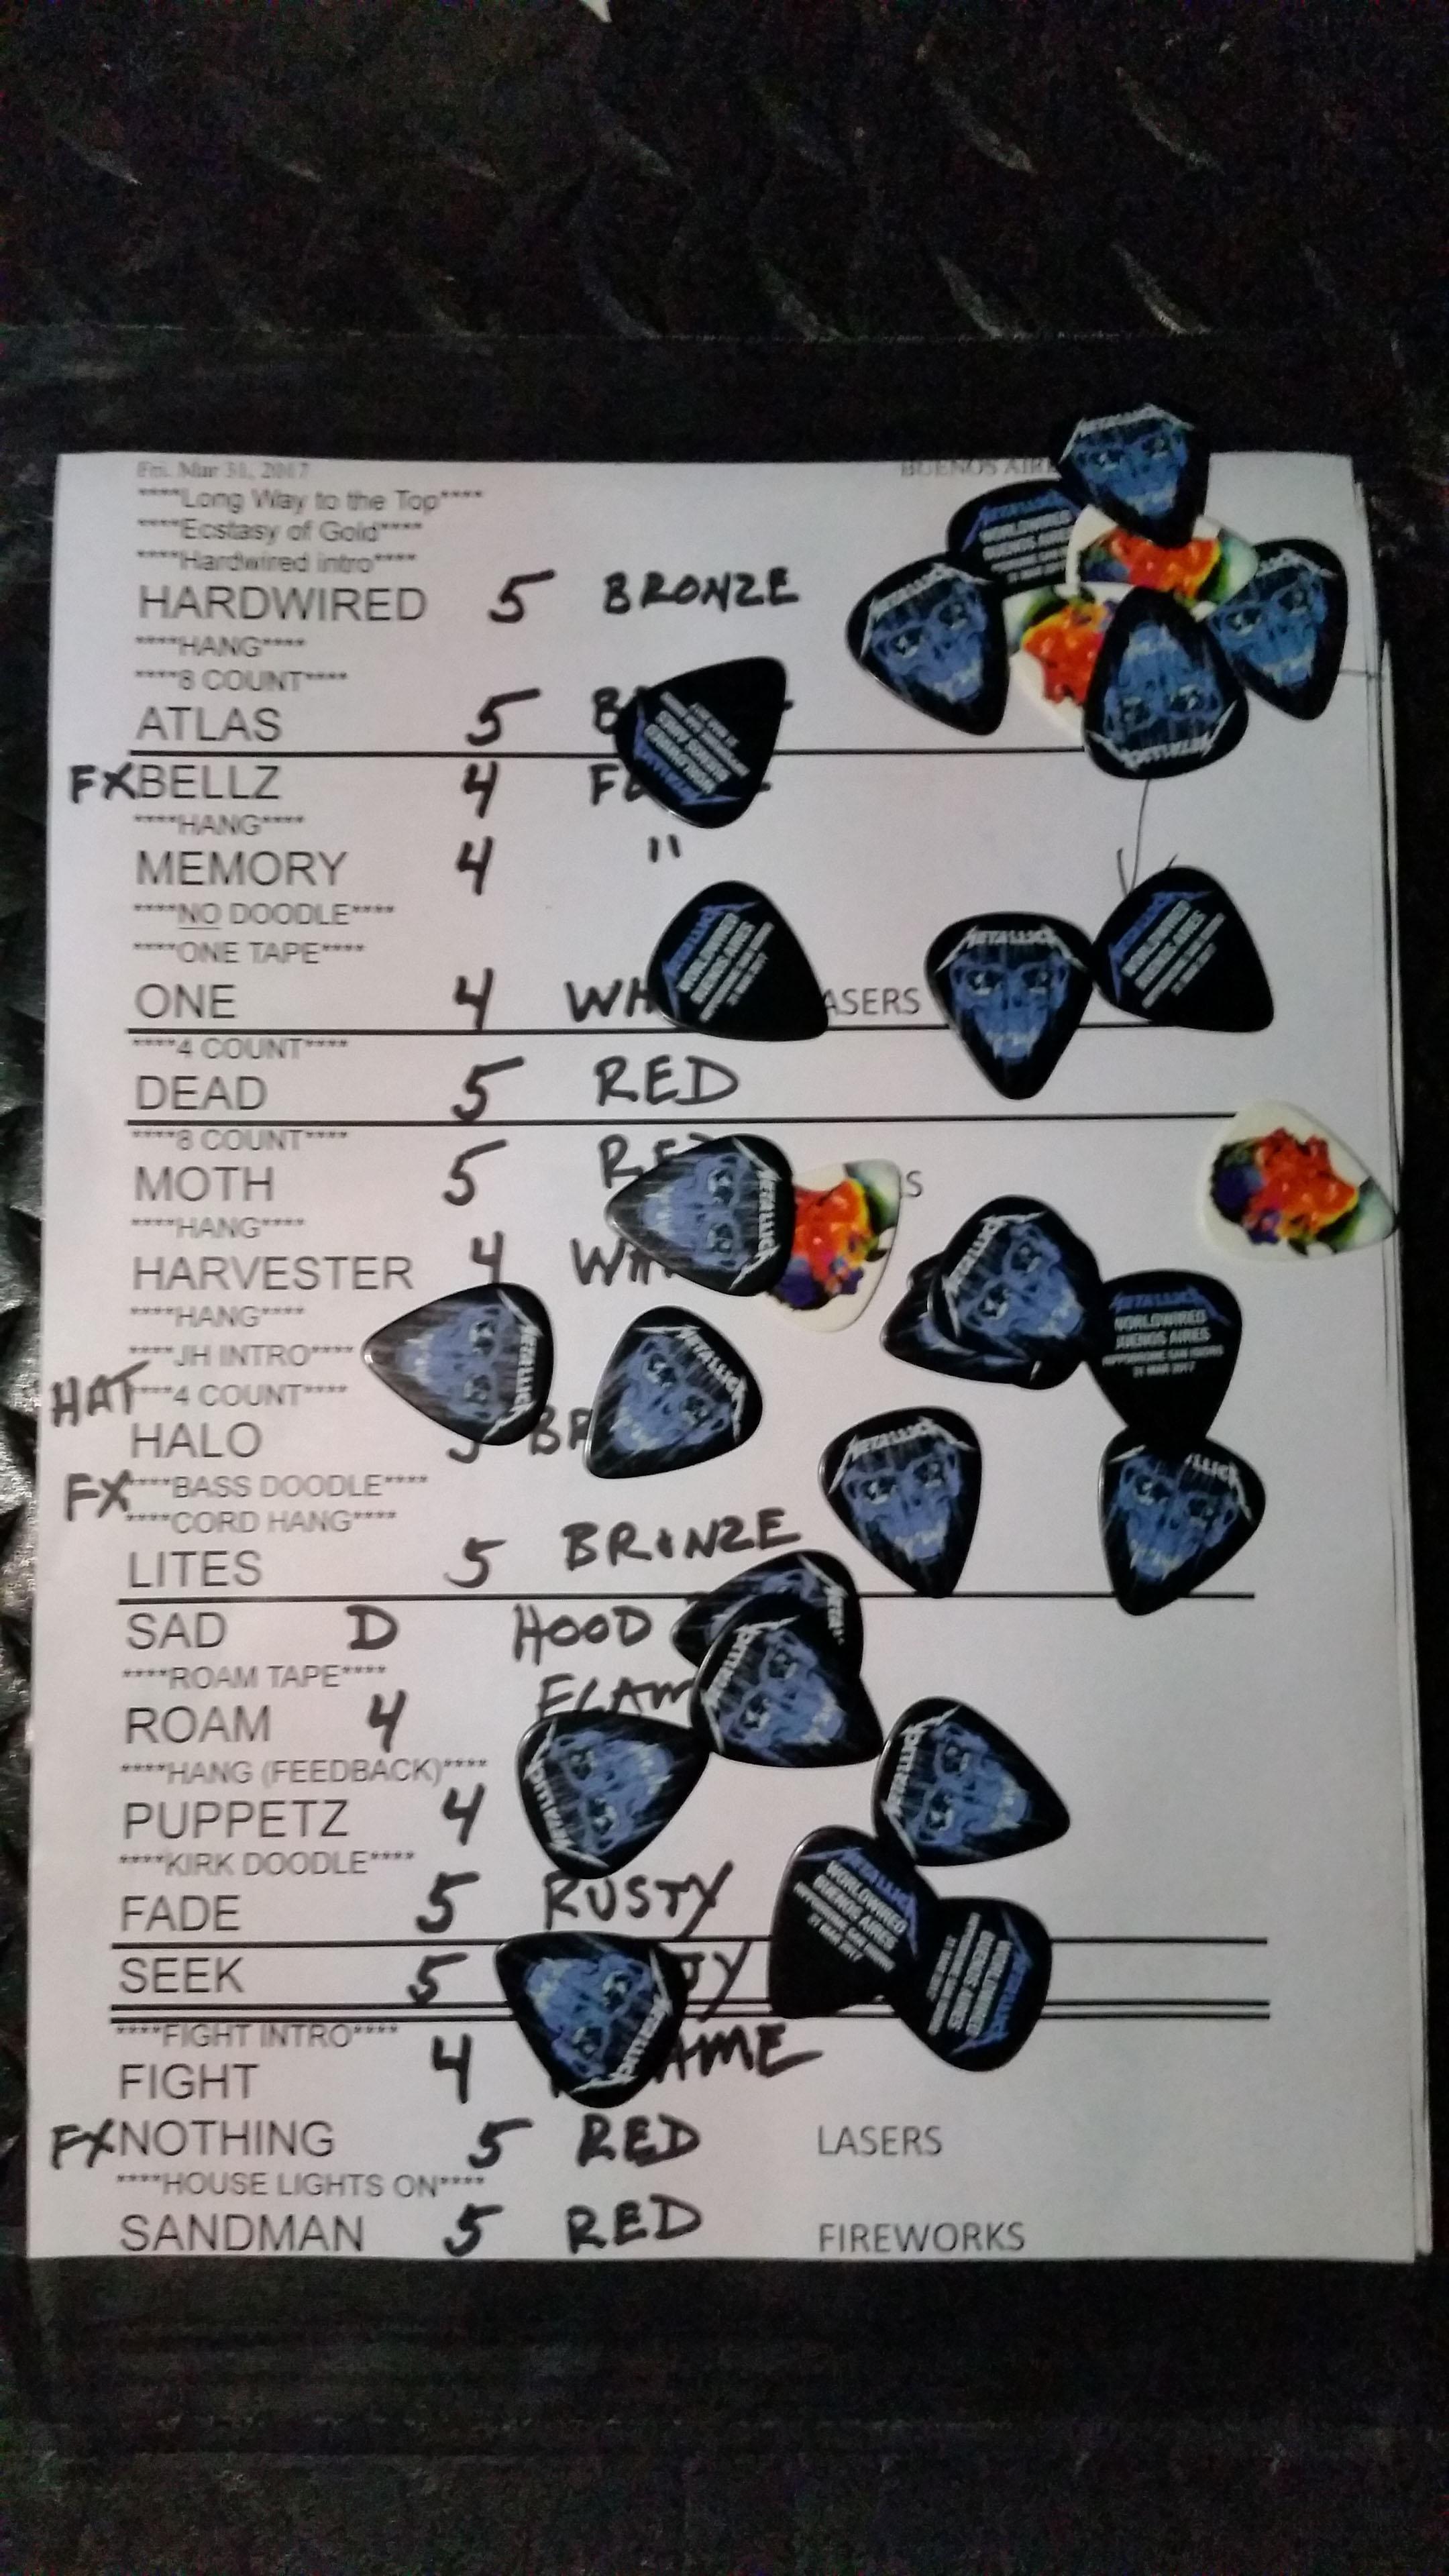 Fri. Mar 31, 2017 BUENOS AIRE
****Long Way to the Top****
****Ecstasy of Gold****
****Hardwired intro****
HARDWIRED 5 BRONZE
****HANG****
****8 COUNT****
ATLAS 5 B
FX BELLZ 4 F
****HANG****
MEMORY 4 "
****NO DOODLE****
****ONE TAPE****
ONE 4 WH ASERS
****4 COUNT****
DEAD 5 RED
****8 COUNT****
MOTH 5 RE S
****HANG****
HARVESTER 4 WH
****HANG****
****JH INTRO****
HAT ****4 COUNT****
HALO 5 BR
FX ****BASS DOODLE****
****CORD HANG****
LITES 5 BRONZE
SAD D HOOD
****ROAM TAPE****
ROAM 4 FLAM
****HANG (FEEDBACK)****
PUPPETZ 4
****KIRK DOODLE****
FADE 5 RUSTY
SEEK 5 TY
****FIGHT INTRO****
FIGHT 4 AME
FX NOTHING 5 RED LASERS
****HOUSE LIGHTS ON****
SANDMAN 5 RED FIREWORKS
METALLICA
METALLICA
WORLDWIRED
BUENOS AIRES
HIPPODROME SAN ISIDRO
31 MAR 2017